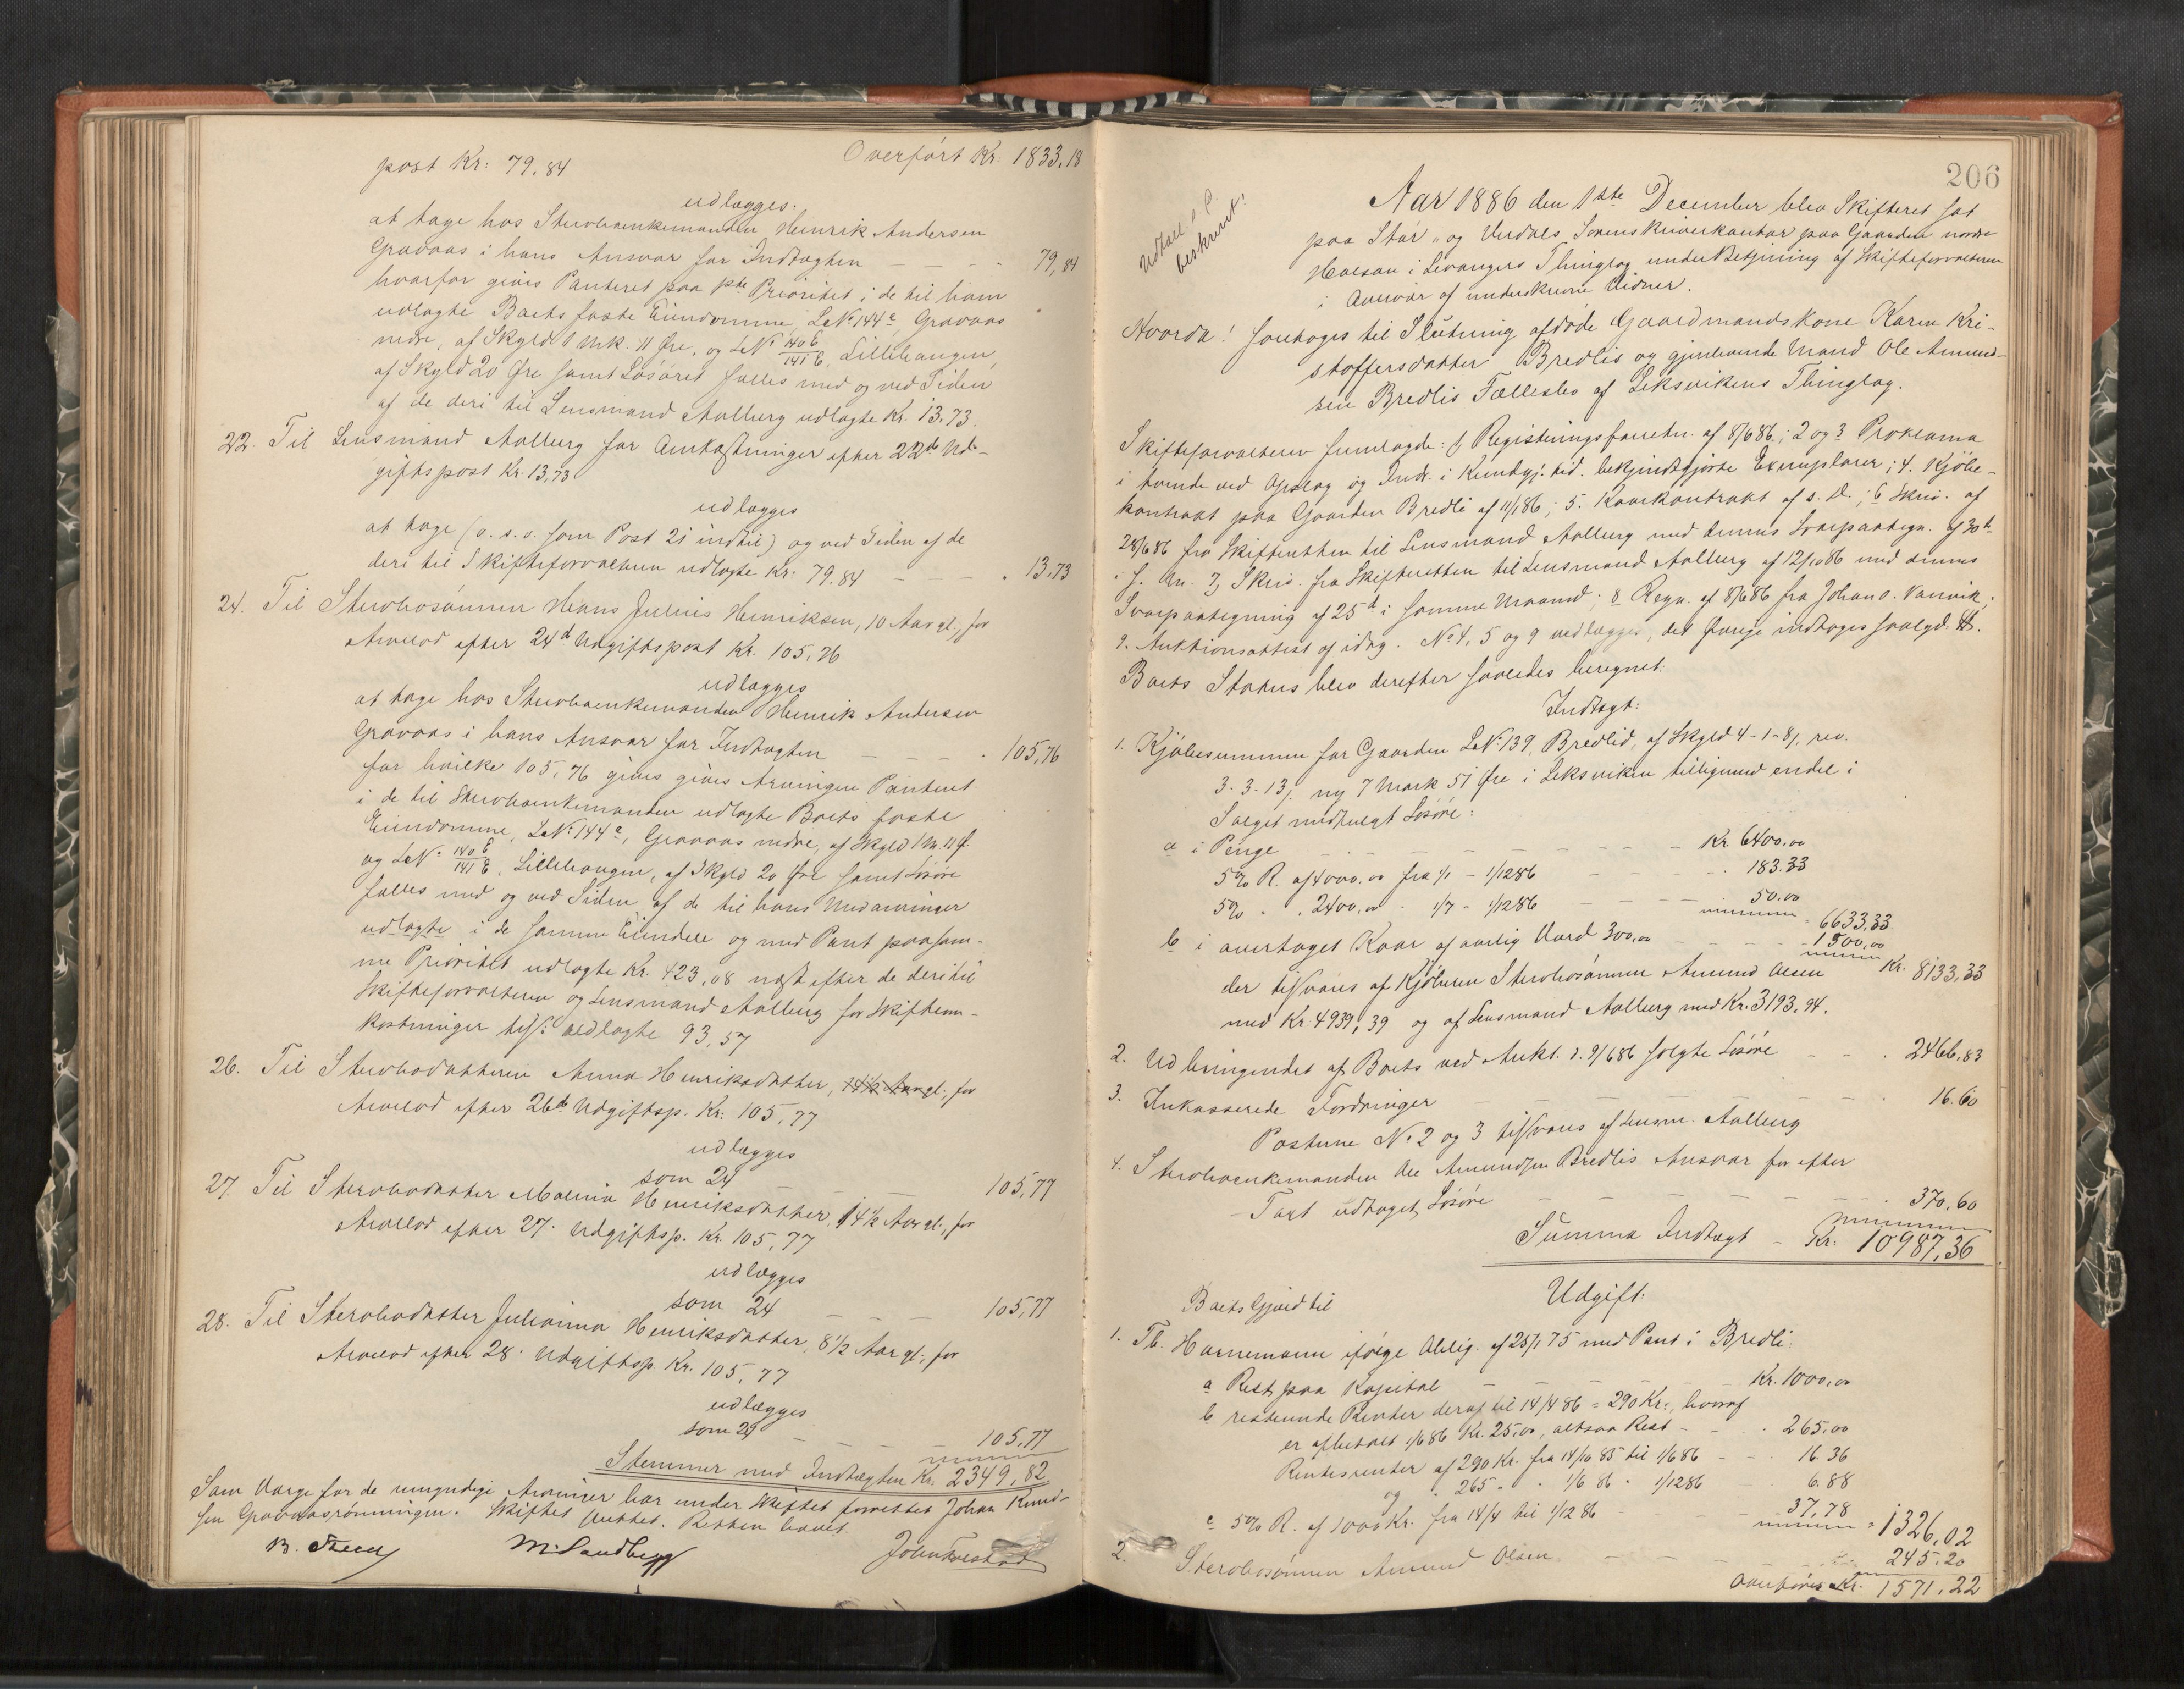 post Kr: 79,84
Overført Kr: 1833,18
udlægges:
at tage hos Stervboenkemanden Henrik Andersen
Gravaas i hans Ansvar for Indtægten - - - 79,84
hvorfor gives Panteret paa 1ste Prioritet i de til ham
udlagte Boets faste Eiendomme, LNo 144a, Gravaas
nedre, af Skyld 1 Mk. 11 Øre, og LNo 140b/141b, Lillehaugen,
af Skyld 20 Øre samt Løsøret fælles med og ved Siden
af de deri til Lensmand Aalberg udlagte Kr. 13,73.
22. Til Lensmand Aalberg for Omkostninger efter 22de Ud-
giftspost Kr. 13,73
udlægges
at tage (o. s. v. som Post 21 indtil) og ved Siden af de
deri til Skifteforvalteren udlagte Kr: 79,84 - - - 13,73
24. Til Stervbosønnen Hans Julius Henriksen, 10 Aar gl., for
Arvelod efter 24d Udgiftspost Kr. 105,76
udlægges
at tage hos Stervboenkemanden Henrik Andersen
Gravaas i hans Ansvar for Indtægten - - - 105,76
for hvilke 105,76 gives gives Arvingen Panteret
i de til Stervboenkemanden udlagte Boets faste
Eiendomme, LNo 144a, Gravaas nedre, af Skyld 1 M. 11 Ø.
og LNo 140b/141b, Lillehaugen, af Skyld 20 Øre samt Løsøre
fælles med og ved Siden af de til hans Medarvinger
udlagte i de samme Eiendele og med Pant paa sam-
me Prioritet udlagte Kr. 423,08 næst efter de deri til
Skifteforvalteren og Lensmand Aalberg for Skifteom-
kostninger tils. udlagte 93,57
26. Til Stervbodatteren Anna Henriksdatter, 14½ Aar gl., for
Arvelod efter 26de Udgiftsp. Kr: 105,77
udlægges
som 24 - - - 105,77
27. Til Stervbodatter Malena Henriksdatter, 14½ Aar gl., for
Arvelod efter 27. Udgiftsp. Kr. 105,77
udlægges
som 24 - - - 105,77
28. Til Stervbodatter Julianna Henriksdatter, 8½ Aar gl., for
Arvelod efter 28. Udgiftsp. Kr. 105,77
udlægges
som 24 - - - 105,77
Stemmer med Indtægten Kr. 2349,82
Som Værge for de umyndige Arvinger har under Skiftet forrettet Johan Knud-
sen Gravaasrønningen. Skiftet sluttet. Retten hævet.
M. Sandberg
John Tvestad
206
beskrevet!
Aar 1886 den 1ste December blev Skifteret sat
paa Stør- og Verdals Sorenskriverkontor paa Gaarden nordre
Halsan i Levangers Thinglag under Betjening af Skifteforvalteren
i Overvær af underskrevne Vidner.
Hvorda! foretoges til Slutning afdøde Gaardmandskone Karen Kri-
stoffersdatter Bredlis og gjenlevende Mand Ole Amund-
sen Bredlis Fællesbo af Leksvikens Thinglag.
Skifteforvalteren fremlagde: 1 Registreringsforretn. af 8/6 86; 2 og 3 Proklama
i tvende ved Opslag og Indr. i Kundgj. tid. bekjendtgjorte Exemplarer; 4. Kjøbe-
kontrakt paa Gaarden Bredli af 11/1 86; 5. Kaarkontrakt af s. D.; 6 Skriv. af
28/6 86 fra Skifteretten til Lensmand Aalberg med dennes Svarpaategn. af 30te
i f. M. 7, Skriv. fra Skifteretten til Lensmand Aalberg af 12/10 86 med dennes
Svarpaategning af 25d i samme Maaned; 8 Regn. af 8/6 86 fra Johan O. Vanvik;
9. Auktionsattest af idag. No 4, 5 og 9 vedlægges, det Øvrige indtages saalyd. #.
Boets Status blev derefter saaledes beregnet:
Indtægt:
1. Kjøbesummen for Gaarden LNo 139, Bredlid, af Skyld 4-1-8, rev.
3-3-13, ny 7 Mark 51 Øre i Leksviken tilligemed endel i
Salget medfulgt Løsøre:
a i Penge - - - Kr. 6400,00
5% R. af 4000,00 fra 1/1 - 1/12 86 - - - 183.33
5% " " 2400,00 " 1/7 - 1/12 86 - - - 50.00
= 6633,33
b i overtaget Kaar af aarlig Værd 300,00 - - - 1500,00
Kr. 8133,33
der tilsvares af Kjøberen Stervbosønnen Amund Olsen
med Kr. 4939,39 og af Lensmand Aalberg med Kr. 3193,94.
2. Udbringendet af Boets ved Aukt. d. 9/6 86 solgte Løsøre - - - 2466,83
3. Inkasserede Fordringer - - - 16.60
Posterne No 2 og 3 tilsvares af Lensm. Aalberg
4. Stervboenkemanden Ole Amundsen Bredlis Ansvar for efter
Taxt udtaget Løsøre - - - 370,60
Summa Indtægt - Kr: 10987,36
Udgift:
Boets Gjæld til
1. Th. Hornemann ifølge Oblig. af 25/1 75 med Pant i Bredli:
a Rest paa Kapital - - - Kr. 1000,00
b resterende Renter deraf til 14/4 86 = 290 Kr., hvoraf
er afbetalt 1/6 86 Kr. 25,00, altsaa Rest - - 265.00
Rentesrenter af 290 Kr. fra 14/10 85 til 1/6 86 - - 16.36
og " 265 - " 1/6 86 " 1/12 86 - - 6.88
c 5% R. af 1000 Kr. fra 14/4 til 1/12 86 - - 37,78
= 1326,02
2. Stervbosønnen Amund Olsen - - - 245.20
Overføres Kr. 1571.22